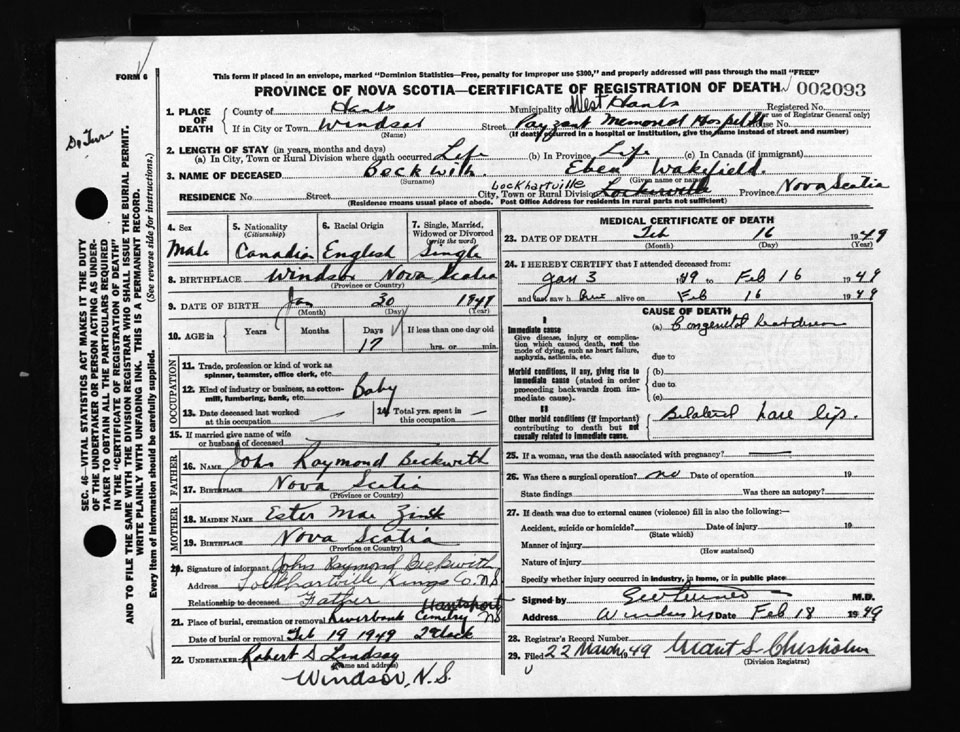 FORM 6
This form if placed in an envelope, marked "Dominion Statistics—Free, penalty for improper use $300," and properly addressed will pass through the mail "FREE"
PROVINCE OF NOVA SCOTIA—CERTIFICATE OF REGISTRATION OF DEATH 002093
1. PLACE OF DEATH County of Hants Municipality of West Hants Registered No.
(For use of Registrar General only)
If in City or Town Windsor Street Payzant Memorial Hospital House No.
(Name) (If death occurred in a hospital or institution, give the name instead of street and number)
2. LENGTH OF STAY (in years, months and days)
(a) In City, Town or Rural Division where death occurred Life (b) In Province Life (c) In Canada (if immigrant)
3. NAME OF DECEASED Beckwith. Eben Wakefield.
(Surname) (Given name or names)
Lockhartville
RESIDENCE No. Street City, Town or Rural Division Province Nova Scotia
(Residence means usual place of abode. Post Office Address for residents in rural parts not sufficient)
SEC. 46—VITAL STATISTICS ACT MAKES IT THE DUTY
OF THE UNDERTAKER OR PERSON ACTING AS UNDER-
TAKER TO OBTAIN ALL THE PARTICULARS REQUIRED
IN THE "CERTIFICATE OF REGISTRATION OF DEATH"
AND TO FILE THE SAME WITH THE DIVISION REGISTRAR WHO SHALL ISSUE THE BURIAL PERMIT.
WRITE PLAINLY WITH UNFADING INK. THIS IS A PERMANENT RECORD.
Every item of Information should be carefully supplied. (See reverse side for instructions.)
4. Sex Male
5. Nationality (Citizenship) Canadian
6. Racial Origin English
7. Single, Married, Widowed or Divorced (write the word) Single
8. BIRTHPLACE Windsor Nova Scotia
(Province or Country)
9. DATE OF BIRTH Jan 30 1949
(Month) (Day) (Year)
10. AGE in Years Months Days If less than one day old
17 hrs. or min.
OCCUPATION
11. Trade, profession or kind of work as
spinner, teamster, office clerk, etc.
12. Kind of industry or business, as cotton-
mill, lumbering, bank, etc. Baby
13. Date deceased last worked
at this occupation
14. Total yrs. spent in
this occupation
15. If married give name of wife
or husband of deceased
FATHER
16. NAME John Raymond Beckwith
17. BIRTHPLACE Nova Scotia
(Province or Country)
MOTHER
18. MAIDEN NAME Ester Mae Zink
19. BIRTHPLACE Nova Scotia
(Province or Country)
20. Signature of informant John Raymond Beckwith
Address Lockhartville Kings Co. N.S.
Relationship to deceased Father
Hantsport
21. Place of burial, cremation or removal Riverbank Cemetry NS
Date of burial or removal Feb 19 1949 2 oclock
22. UNDERTAKER Robert D Lindsay
(Name and address)
Windsor, N.S.
MEDICAL CERTIFICATE OF DEATH
23. DATE OF DEATH Feb 16 1949
(Month) (Day) (Year)
24. I HEREBY CERTIFY that I attended deceased from:
Jan 3 49 to Feb 16 1949
and last saw h him alive on Feb 16 1949
CAUSE OF DEATH
I
Immediate cause
Give disease, injury or complica-
tion which caused death, not the
mode of dying, such as heart failure,
asphyxia, asthenia, etc.
(a) Congenital heart disease
due to
Morbid conditions, if any, giving rise to
immediate cause (stated in order
proceeding backwards from im-
mediate cause).
(b)
due to
(c)
II
Other morbid conditions (if important)
contributing to death but not
causally related to immediate cause.
Bilateral hare lip.
25. If a woman, was the death associated with pregnancy?
26. Was there a surgical operation? no Date of operation 19
State findings Was there an autopsy?
27. If death was due to external causes (violence) fill in also the following:—
Accident, suicide or homicide? Date of injury 19
(State which)
Manner of injury
(How sustained)
Nature of injury
Specify whether injury occurred in industry, in home, or in public place
Signed by M.D.
Address Windsor NS Date Feb 18 1949
28. Registrar's Record Number
29. Filed 22 March 1949 Grant S. Chisholm
(Division Registrar)